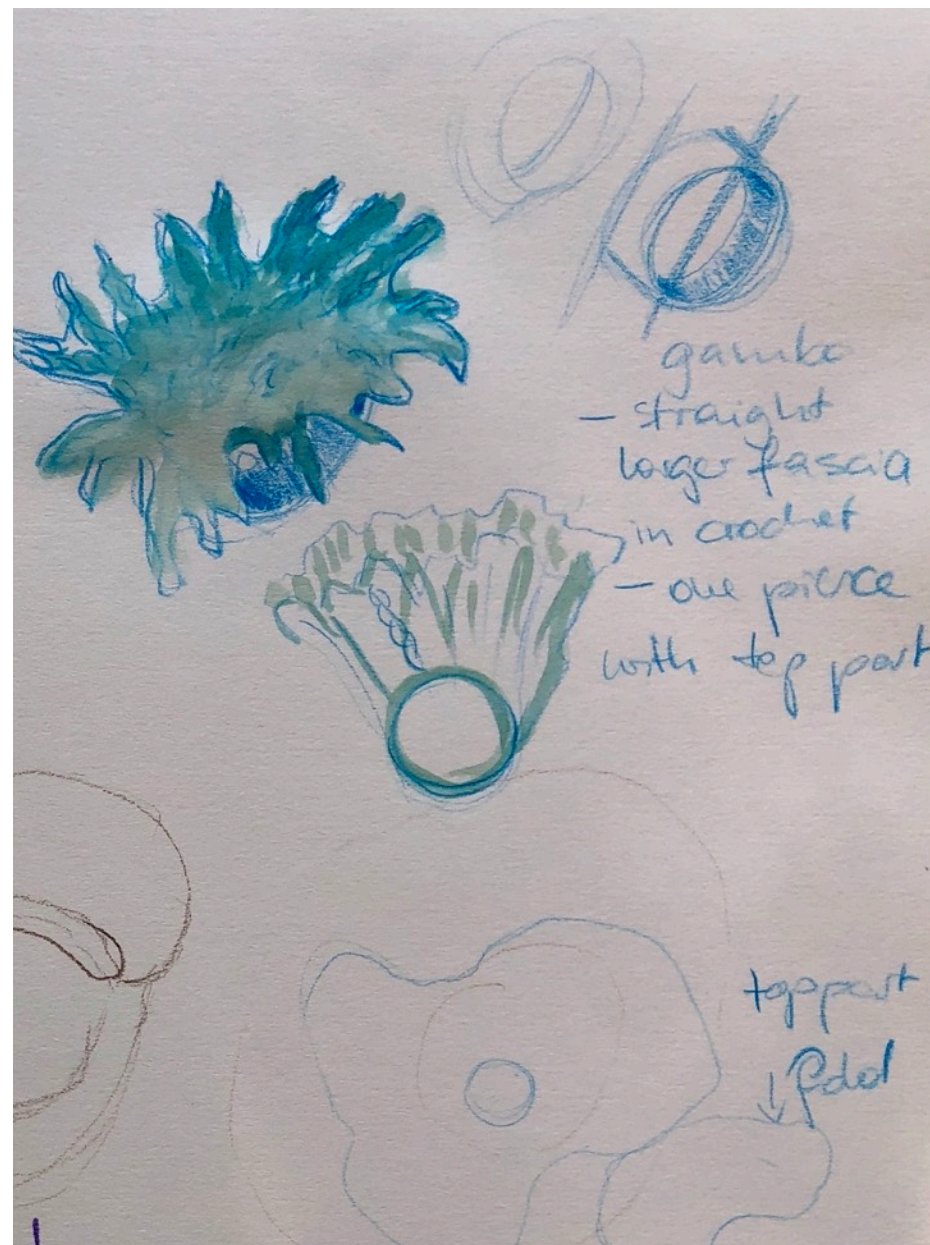 gambo
– straight
larger fascia
in crochet
– one pierce
with top part
top part
↓ fold